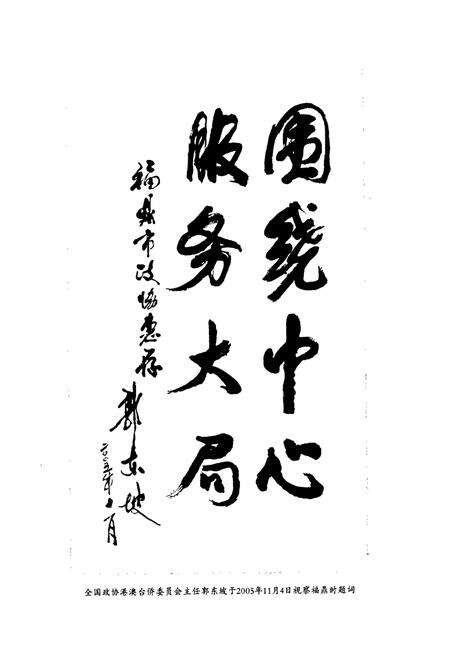 围绕中心
服务大局
福鼎市政协惠存
郭东坡
二〇〇五年十一月
全国政协港澳台侨委员会主任郭东坡于2005年11月4日视察福鼎时题词